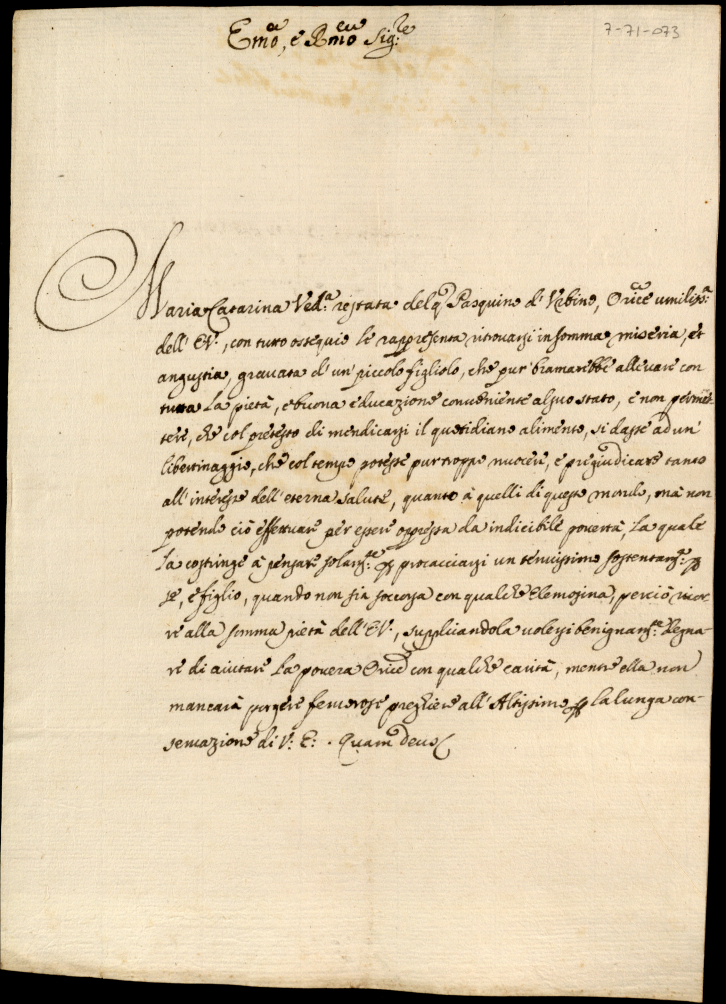 7-71-073
Emo, e Rmo Sig:re
Maria Catarina Ved:a restata del q Pasquino d'Urbino, Orice umiliss:a
dell'E.V., con tutto ossequio le rappresenta ritrovarsi in somma miseria, et
angustia, gravata d'un piccolo figliolo, che pur bramarebbe allevare con
tutta la pietà, e buona educazione conveniente al suo stato, e non permet-
tere, che col pretesto di mendicarsi il quotidiano alimento, si dasse ad un
libertinaggio, che col tempo potesse pur troppo nuocere, e pregiudicare tanto
all'interesse dell'eterna salute, quanto à quelli di questo mondo, mà non
potendo ciò effettuare per essere oppressa da indicibile povertà, la quale
la costringe à pensare solam:te per procacciarsi un tenuissimo sostentam:to per
se, e figlio, quando non sia soccorsa con qualche elemosina, perciò ricor-
re alla somma pietà dell'E.V., supplicandola volersi benignam:te degna-
re di aiutare la povera Orice con qualche carità, mentre ella non
mancarà porgere fervorose preghiere all'Altissimo per la lunga con-
servazione di V: E: . Quam Deus